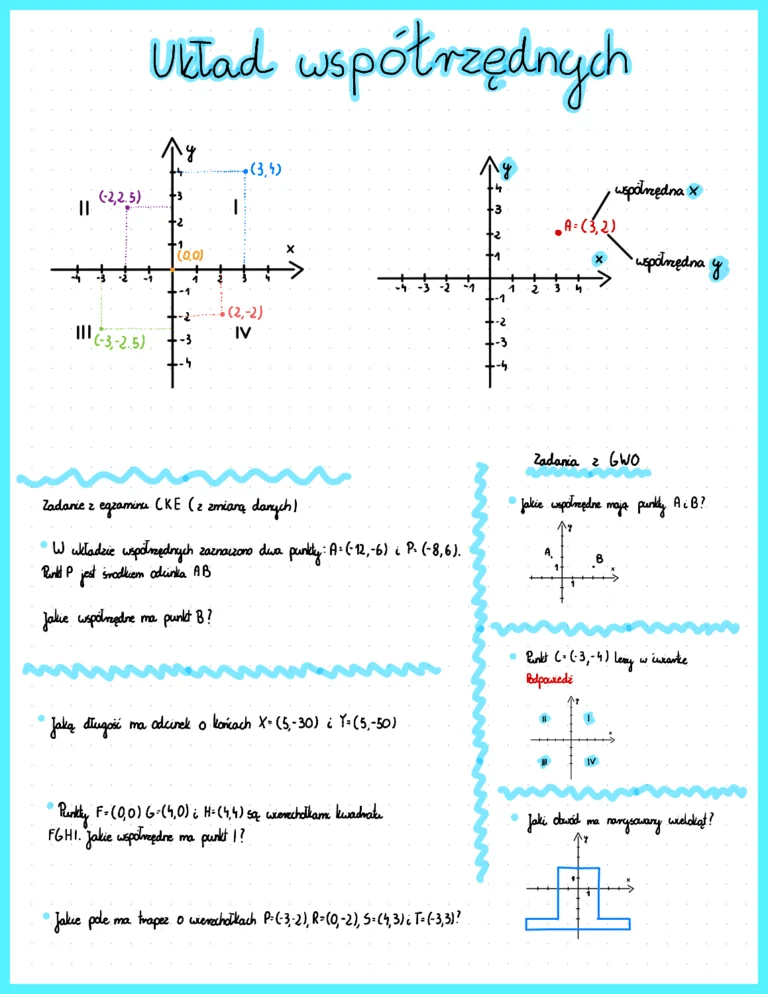 Układ współrzędnych
y
4
3
2
1
-4 -3 -2 -1 1 2 3 4
x
-1
-2
-3
-4
II
I
III
IV
(3,4)
(-2,2.5)
(0,0)
(2,-2)
(-3,-2.5)
y
4
3
2
1
-4 -3 -2 -1 1 2 3 4
x
-1
-2
-3
-4
A=(3,2)
współrzędna x
współrzędna y
Zadanie z egzaminu CKE (z zmianą danych)
W układzie współrzędnych zaznaczono dwa punkty: A=(-12,-6) i P=(-8,6).
Punkt P jest środkiem odcinka AB
Jakie współrzędne ma punkt B?
Jaką długość ma odcinek o końcach X=(5,-30) i Y=(5,-50)
Punkty F=(0,0) G=(4,0) i H=(4,4) są wierzchołkami kwadratu
FGHI. Jakie współrzędne ma punkt I?
Jakie pole ma trapez o wierzchołkach P=(-3,-2), R=(0,-2), S=(4,3) i T=(-3,3)?
Zadania z GWO
Jakie współrzędne mają punkty A i B?
y
A
B
1
x
1
Punkt C=(-3,-4) leży w ćwiartce
Podpowiedź
y
II
I
x
III
IV
Jaki obwód ma narysowany wielokąt?
y
x
1
1